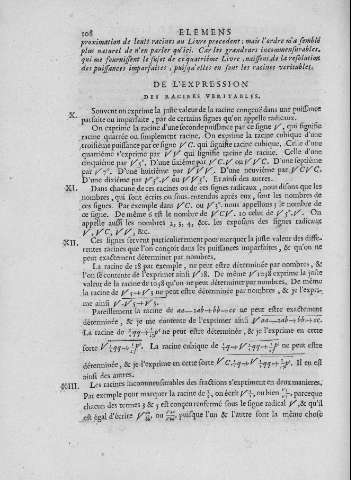 108 ELEMENS
proximation de leurs racines au Livre precedent; mais l'ordre m'a semblé
plus naturel de n'en parler qu'ici. Car les grandeurs incommensurables,
qui me fournissent le sujet de ce quatriéme Livre, naissent de la resolution
des puissances imparfaites, puisqu'elles en sont les racines veritables.
DE L'EXPRESSION
DES RACINES VERITABLES.
X. Souvent on exprime la juste valeur de la racine conçuë dans une puissance
parfaite ou imparfaite, par de certains signes qu'on appelle radicaux.
On exprime la racine d'une seconde puissance par ce signe √, qui signifie
racine quarrée ou simplement racine. On exprime la racine cubique d'une
troisiéme puissance par ce signe √C. qui signifie racine cubique. Celle d'une
quatriéme s'exprime par √√ qui signifie racine de racine. Celle d'une
cinquiéme par √5e. D'une sixiéme par √C.√ ou √√C. D'une septiéme
par √7e. D'une huitiéme par √√√. D'une neuviéme par √C√C.
D'une dixiéme par √5e.√ ou √√5e. Et ainsi des autres.
XI. Dans chacune de ces racines ou de ces signes radicaux, nous disons que les
nombres, qui sont écrits ou sous-entendus aprés eux, sont les nombres de
ces signes. Par exemple dans √C. ou √3e; nous appellons 3 le nombre de
ce signe. De même 6 est le nombre de √C√. 10 celuy de √5e.√. On
appelle aussi les nombres 2, 3, 4, &c. les exposans des signes radicaux
√, √C, √√, &c.
XII. Ces signes servent particulierement pour marquer la juste valeur des diffe-
rentes racines que l'on conçoit dans les puissances imparfaites, & qu'on ne
peut exactement déterminer par nombres.
La racine de 18 par exemple, ne peut estre déterminée par nombres, &
l'on se contente de l'exprimer ainsi √18. De même √1058 exprime la juste
valeur de la racine de 1058 qu'on ne peut déterminer par nombres. De même
la racine de √5+√5 ne peut estre déterminée par nombres, & je l'expri-
me ainsi √.√5+√5.
Pareillement la racine de aa—2ab+bb—cc ne peut estre exactement
déterminée, & je me contente de l'exprimer ainsi √aa—2ab+bb—cc.
déterminée, & je l'exprime en cette sorte
Il en est
ainsi des autres.
XIII. Les racines incommensurables des fractions s'expriment en deux manieres.
Par exemple pour marquer la racine de
on écrit
ou bien
parceque
chacun des termes 3 & 5 est conçu renfermé sous le signe radical √, & qu'il
est égal d'écrite
puisque l'un & l'autre sont la même chose